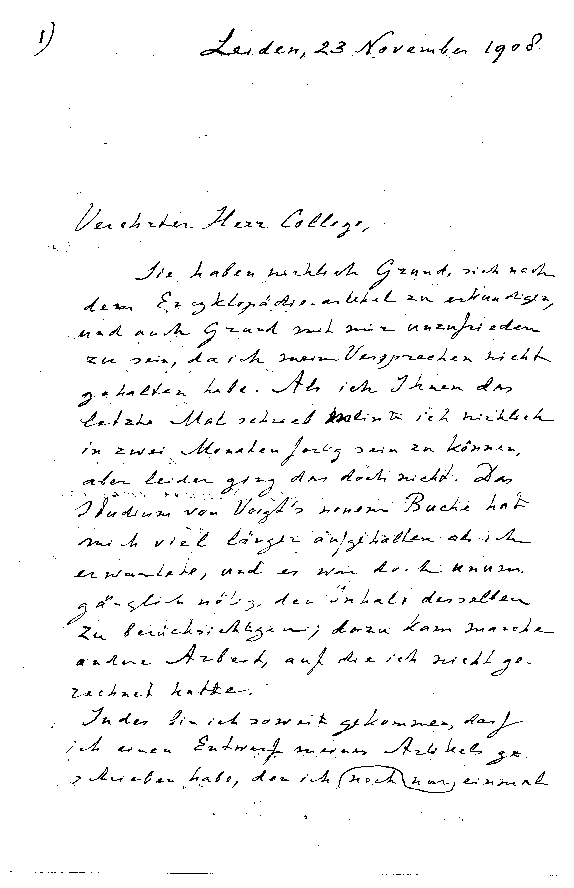 1)
Leiden, 23 November 1908.
Verehrter Herr College,
Sie haben wirklich Grund, sich nach
dem Encyklopädieartikel zu erkundigen,
und auch Grund mit mir unzufrieden
zu sein, da ich mein Versprechen nicht
gehalten habe. Als ich Ihnen das
letzte Mal schrieb meinte ich wirklich
in zwei Monaten fertig sein zu können,
aber leider ging das doch nicht. Das
Studium von Voigt's neuem Buche hat
mich viel länger aufgehalten als ich
erwartete, und es war doch unum
gänglich nötig den Inhalt desselben
zu berücksichtigen; dazu kam manche
andere Arbeit, auf die ich nicht ge-
rechnet hatte.
Indes bin ich soweit gekommen, dass
ich einen Entwurf meines Artikels ge
schrieben habe, den ich noch nur einmal